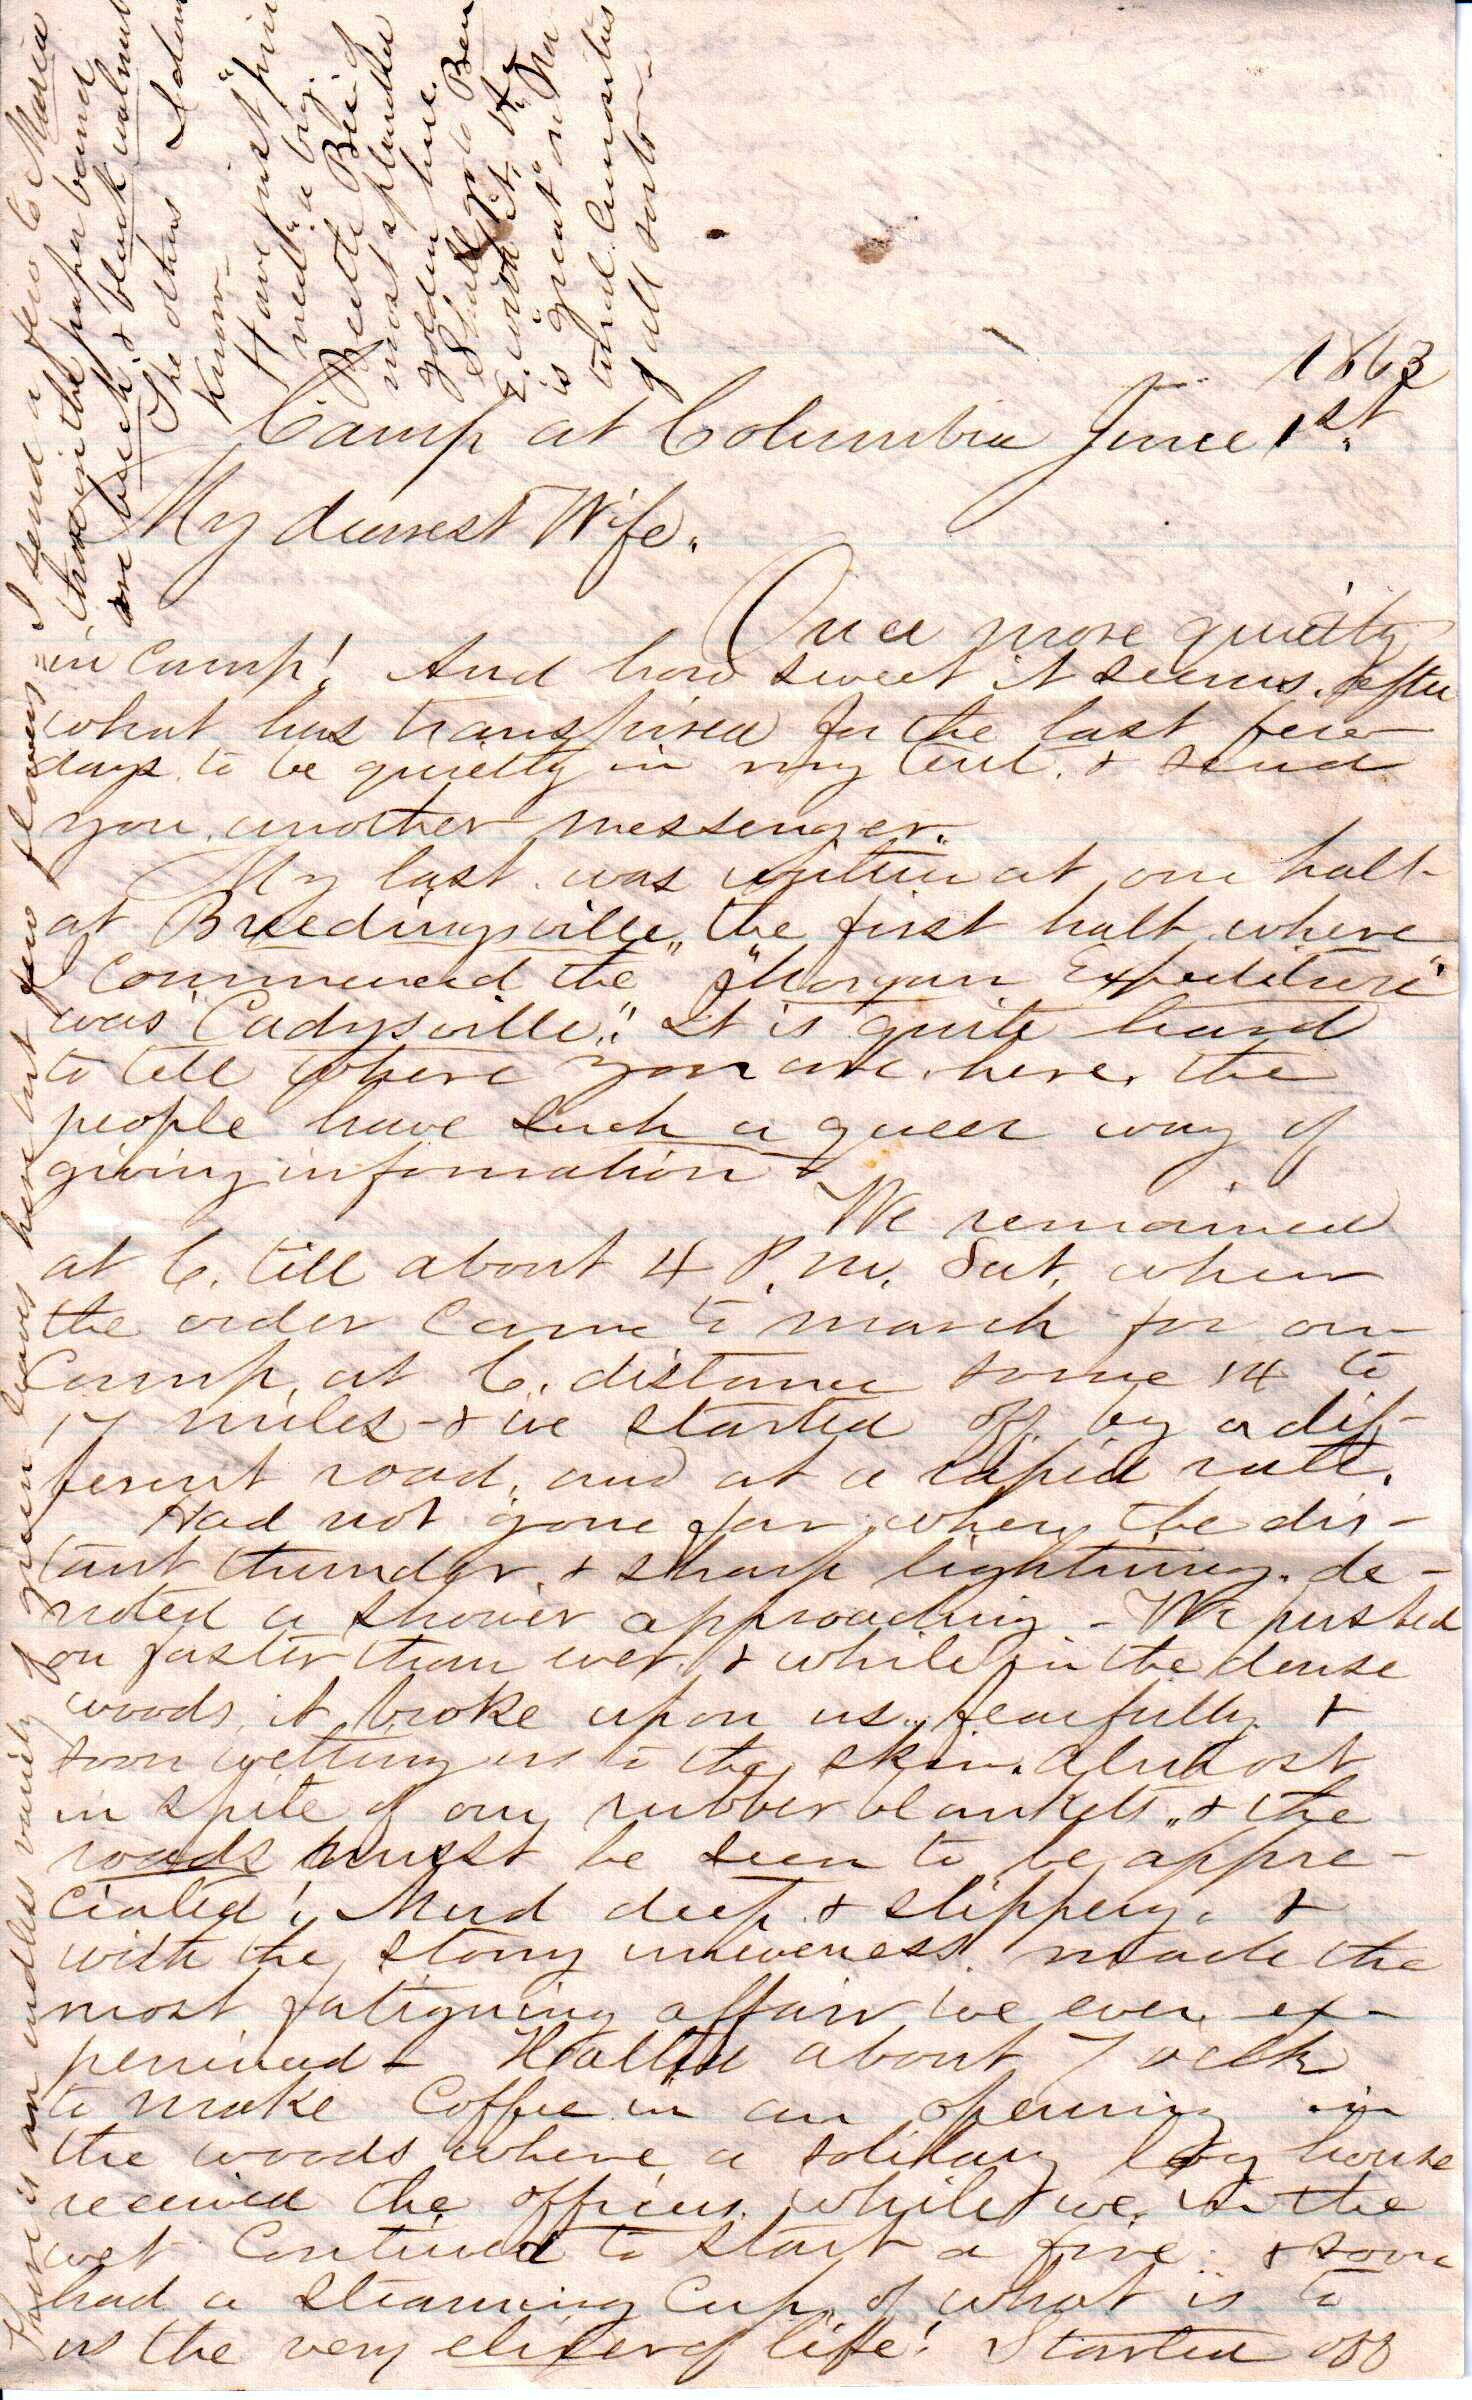 1863
Camp at Columbia June 1st.
My dearest Wife.
Once more quietly
in Camp! And how sweet it seems, after
what has transpired for the last few
days, to be quietly in my tent, & send
you another messenger.
My last was written at our halt
at Breedingsville, the first halt where
I commenced the "Morgan Expedition"
was "Cadysville." It is quite hard
to tell where you are here, the
people have such a queer way of
giving information.
We remained
at C. till about 4 P.M. Sat. when
the order came to march for our
Camp, at C. distance some 14 to
17 miles - & we started off by a dif-
ferent road, and at a rapid rate.
Had not gone far when the dis-
tant thunder, & sharp lightning, de-
noted a shower approaching - We pushed
on faster than ever, & while in the dense
woods, it broke upon us, fearfully &
soon wetting us to the skin. Almost
in spite of our rubber blankets, & the
roads must be seen to be appre-
ciated! Mud deep & slippery, &
with the stony uneveness, made the
most fatiguing affair we ever ex-
perienced - Halted about 7 oclk
to make Coffee in an opening in
the woods where a solitary log house
received the officers, while we in the
wet Contrived to start a fire & soon
had a steaming Cup, of what is to
us the very elixer of life! Started off
There is an endless variety of green leaves here but few flowers - I send a few to Maria
those in the paper band
are beech & black walnut
The others I dont
know -
Have just pin
ned "a big"
Beetle Bug of
most splendid
golden hue.
Shall go to Ben
E. with it, he
is "great" on Na
tural Curiosities
of all sorts -